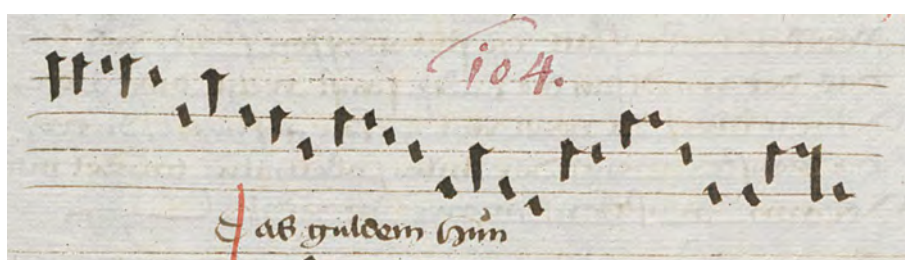 104.
Das guldem hůn